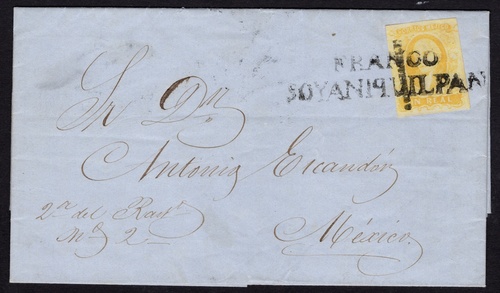 FRANCO
SOYANIQUILPAN
REAL
Sr. Dn
Antonio Escandón
2a del Rast.
No 2
México.